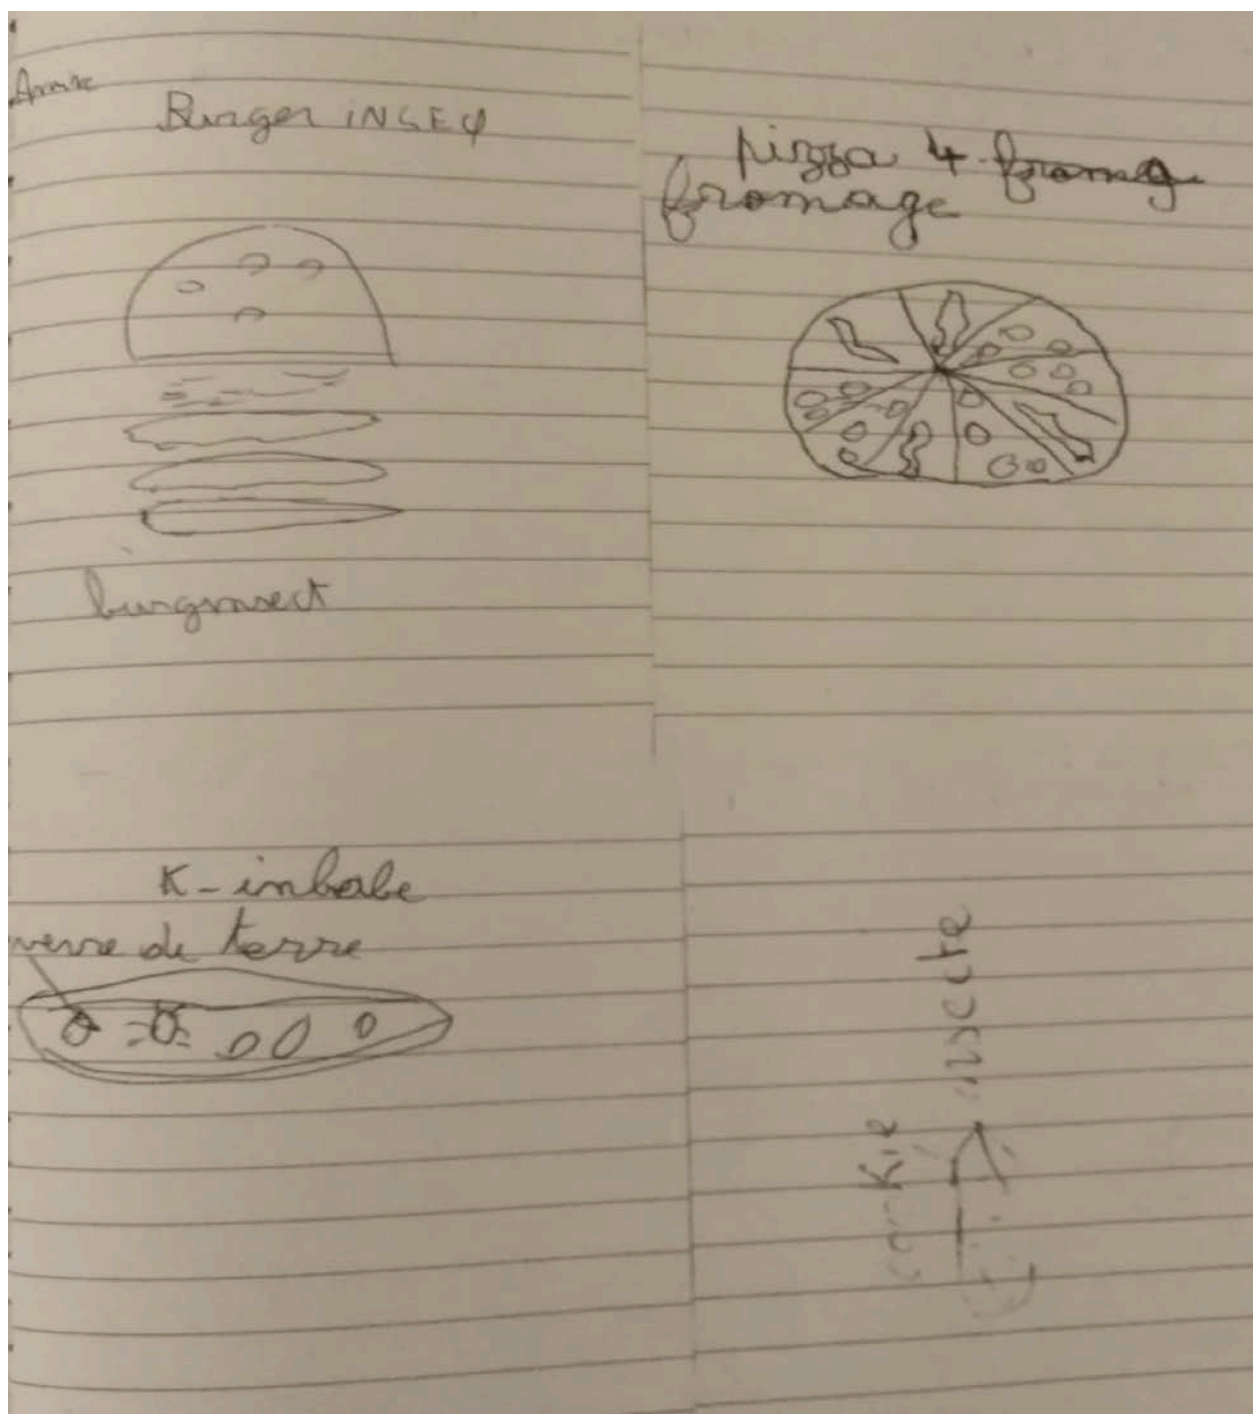 Burger INSEq
pizza 4 fromag
fromage
burginsect
K-inbabe
verre de terre
cookie
insecte